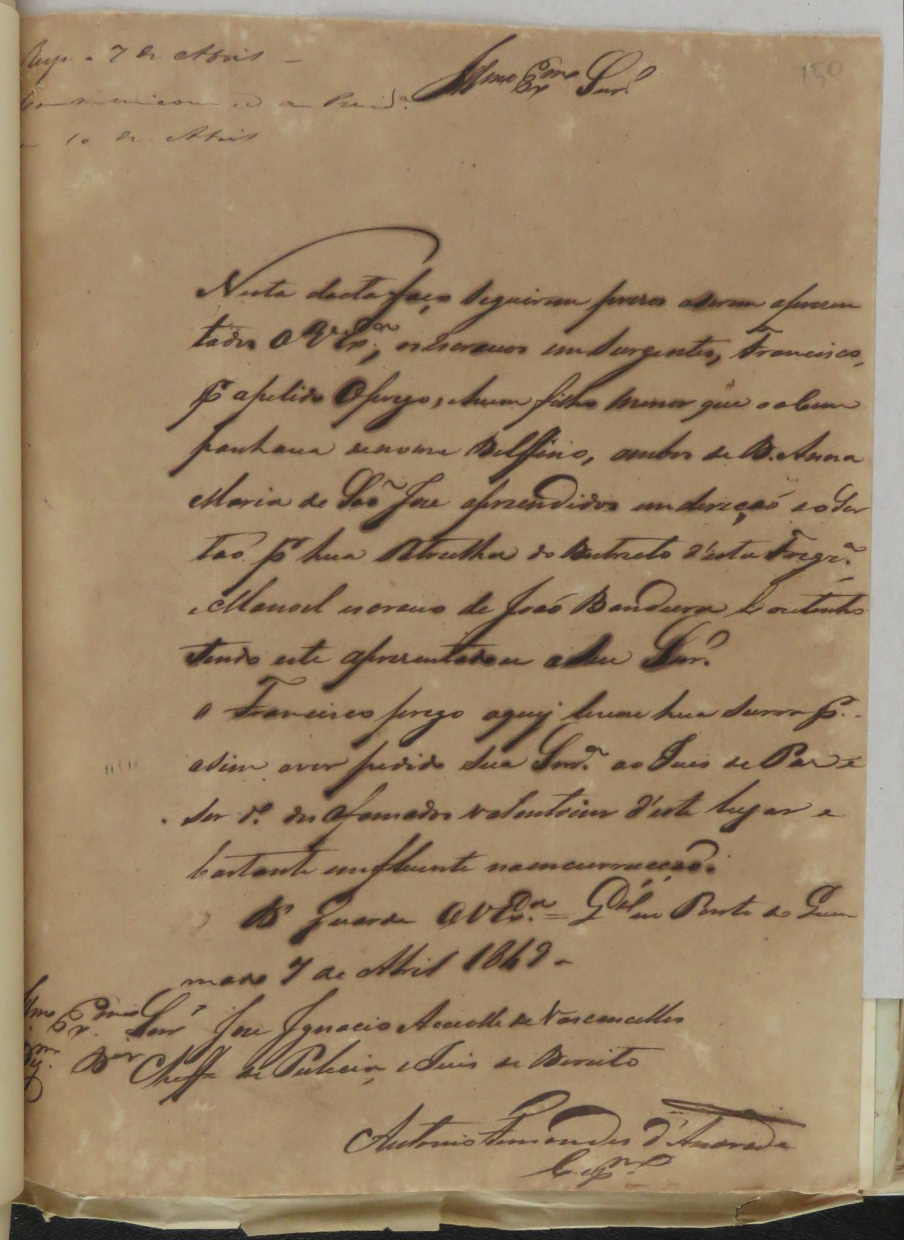 Resp. a 7 de Abril
Communicou-se ao Presid.ᵉ
a 10 de Abril
150
Illmo Exmo Snr.
Nesta dacta faço seguirem prezos aserem aprezen
tados a V Exª., os escravos insurgentes, Francisco,
pʳ apelido O prego, ehum filho menor que o acom
panhava denome Delffino, ambos de D. Anna
Maria de Saõ Jose aprendidos em direcçaó ao Ser
tao pʳ hua Patrulha do Destricto d'esta Fregª.
e Manoel escravo de Joaó Bandeira Coutinho
tendo este aprezentadose a seu Snr.
O Francisco prego aquj levou hua surra pʳ.
asim aver pedido sua Snrª. ao Juis de Paz e
ser dº. dos afamados valentoins d'este lugar e
bastante imfluente nainsurreiçaõ.
Dˢ Guarde a V Exª. = Qᵈᵉˡ em Porto do Quei
mado 7 de Abril 1849.
Illmo Exmo Snr Jose Ignacio Accioli de Vasconcellos
Dgmo Dor Cheffe de Pulicia, e Juis de Dereito
Antonio Fernandes d'Andrade
Capᵐ